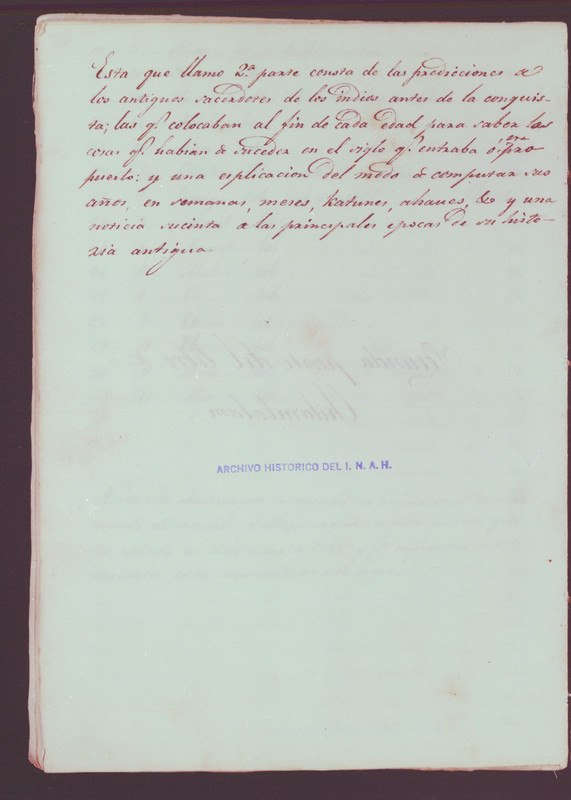 Esta que llamo 2.ª parte consta de las predicciones de
los antiguos sacerdotes de los indios antes de la conquis-
ta; las q.e colocaban al fin de cada edad para saber las
cosas q.e habian de suceder en el siglo q.e entraba ó era pro
puerto: y una esplicacion del modo de computar sus
años, en semanas, meses, katunes, ahaues, &c y una
noticia sucinta de las principales epocas de su histo-
ria antigua
Segunda parte del libro de
Chilambalam
ARCHIVO HISTORICO DEL I. N. A. H.